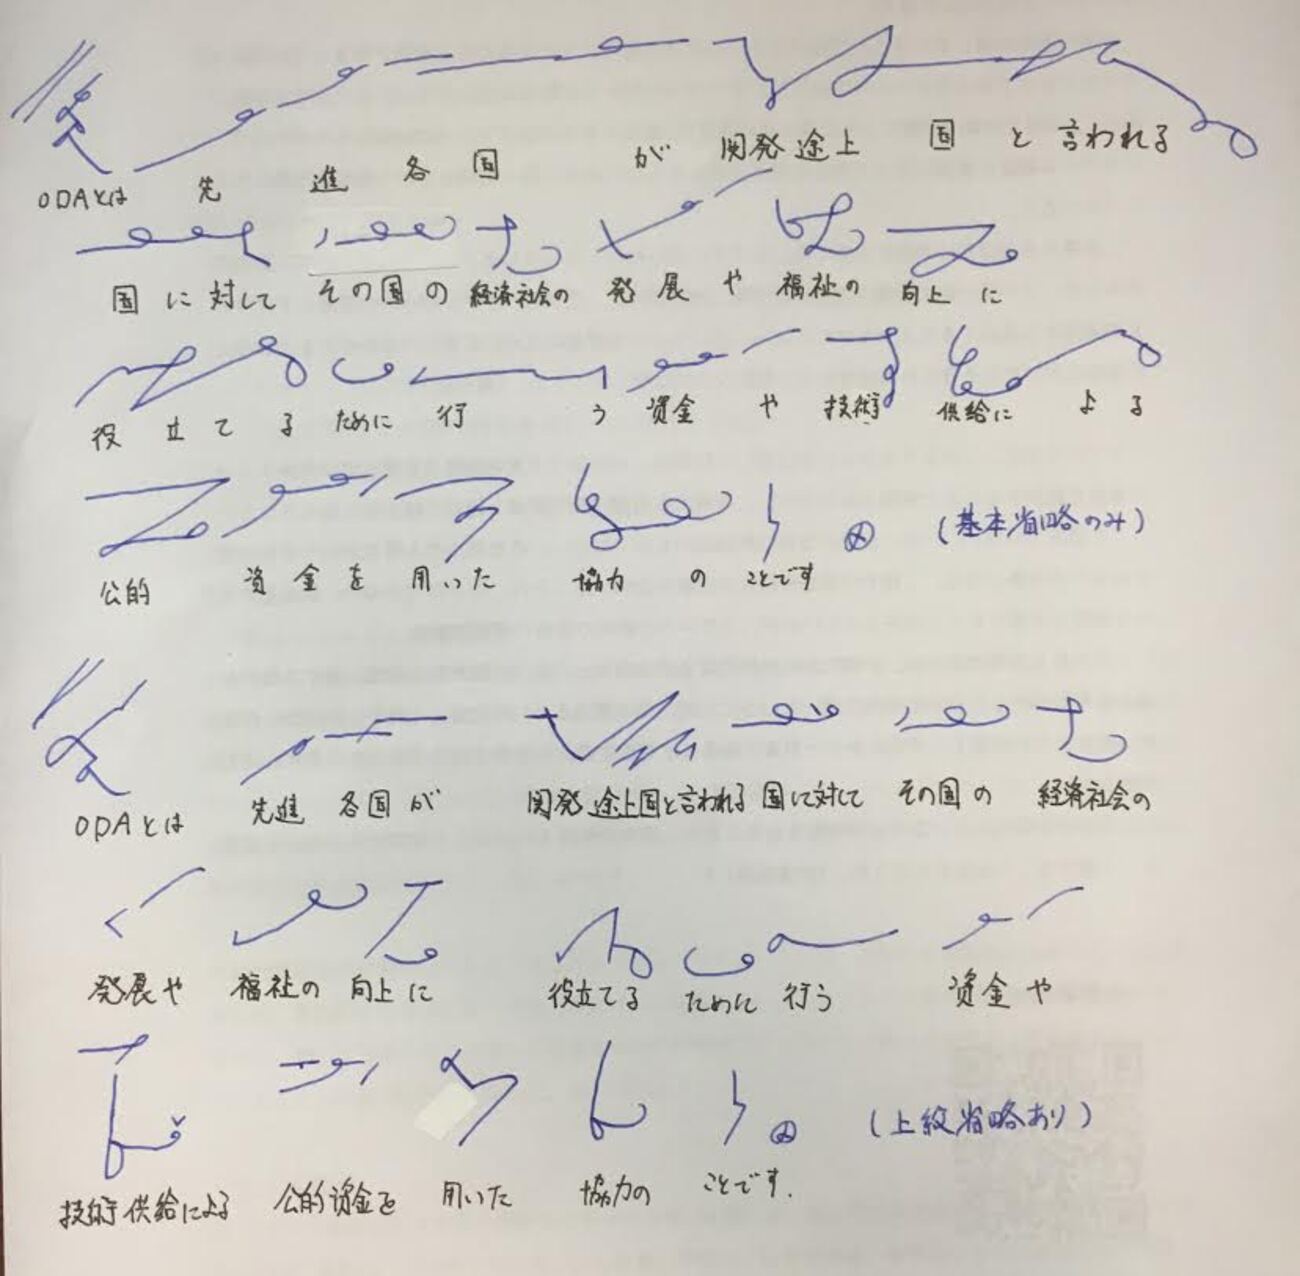 ODAとは 先進各国が開発途上国と言われる
国に対して その国の 経済社会の 発展や 福祉の 向上に
役立てる ために 行う 資金や 技術 供給に よる
公的 資金を 用いた 協力の ことです (基本省略のみ)
ODAとは 先進各国が 開発途上国と言われる 国に対して その国の 経済社会の
発展や 福祉の 向上に 役立てる ために 行う 資金や
技術供給による 公的資金を 用いた 協力の ことです. (上級省略あり)